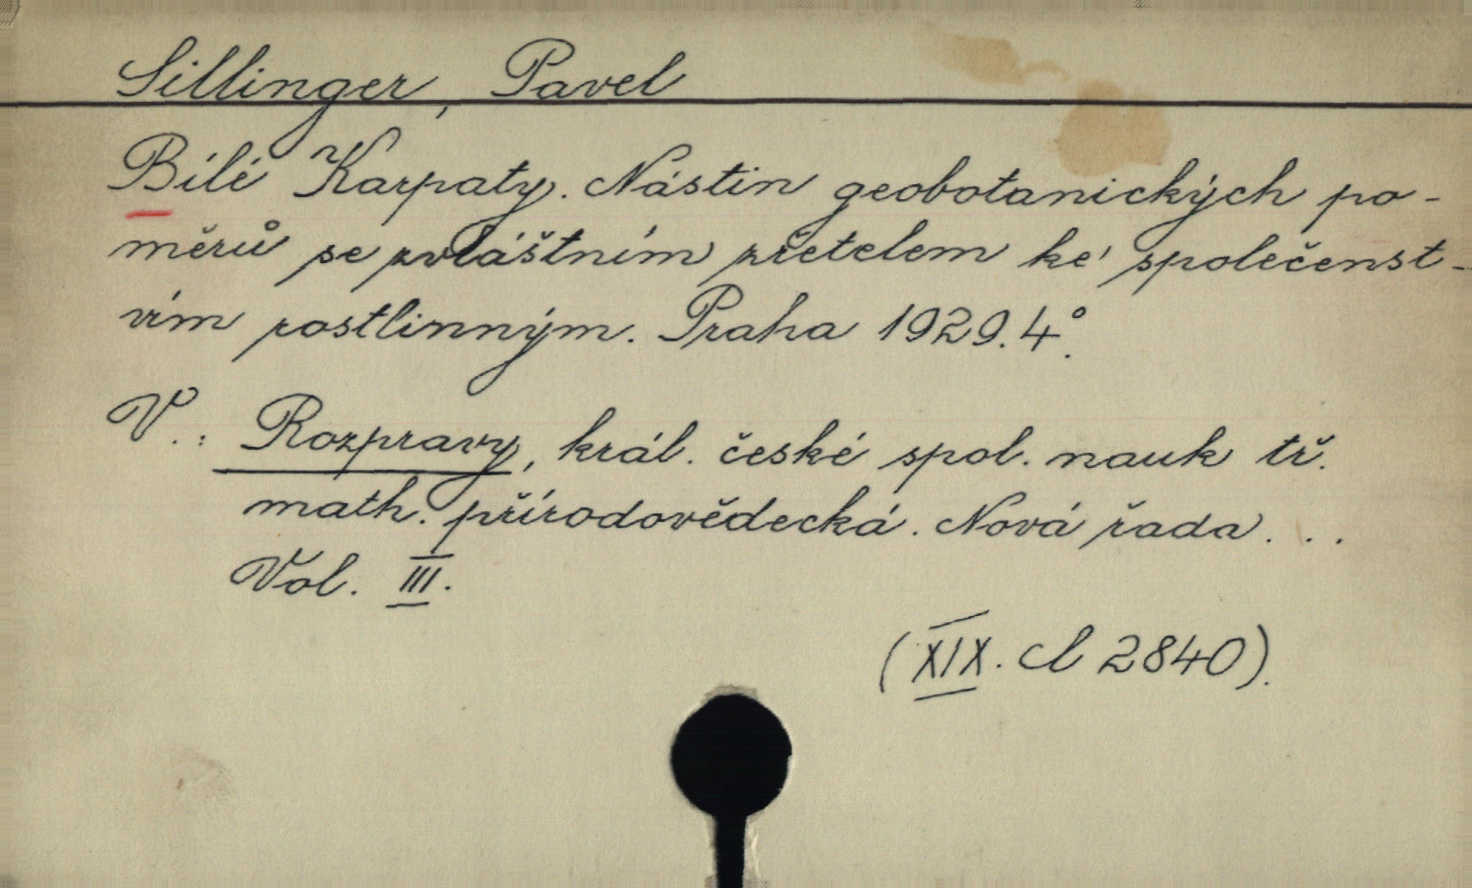 Sillinger, Pavel
Bílé Karpaty. Nástin geobotanických po-
měrů se zvláštním zřetelem ke společenst-
vím rostlinným. Praha 1929. 4°.
V.: Rozpravy, král. české spol. nauk tř.
math. přírodovědecká. Nová řada. . .
Vol. III.
(XIX. cl 2840).